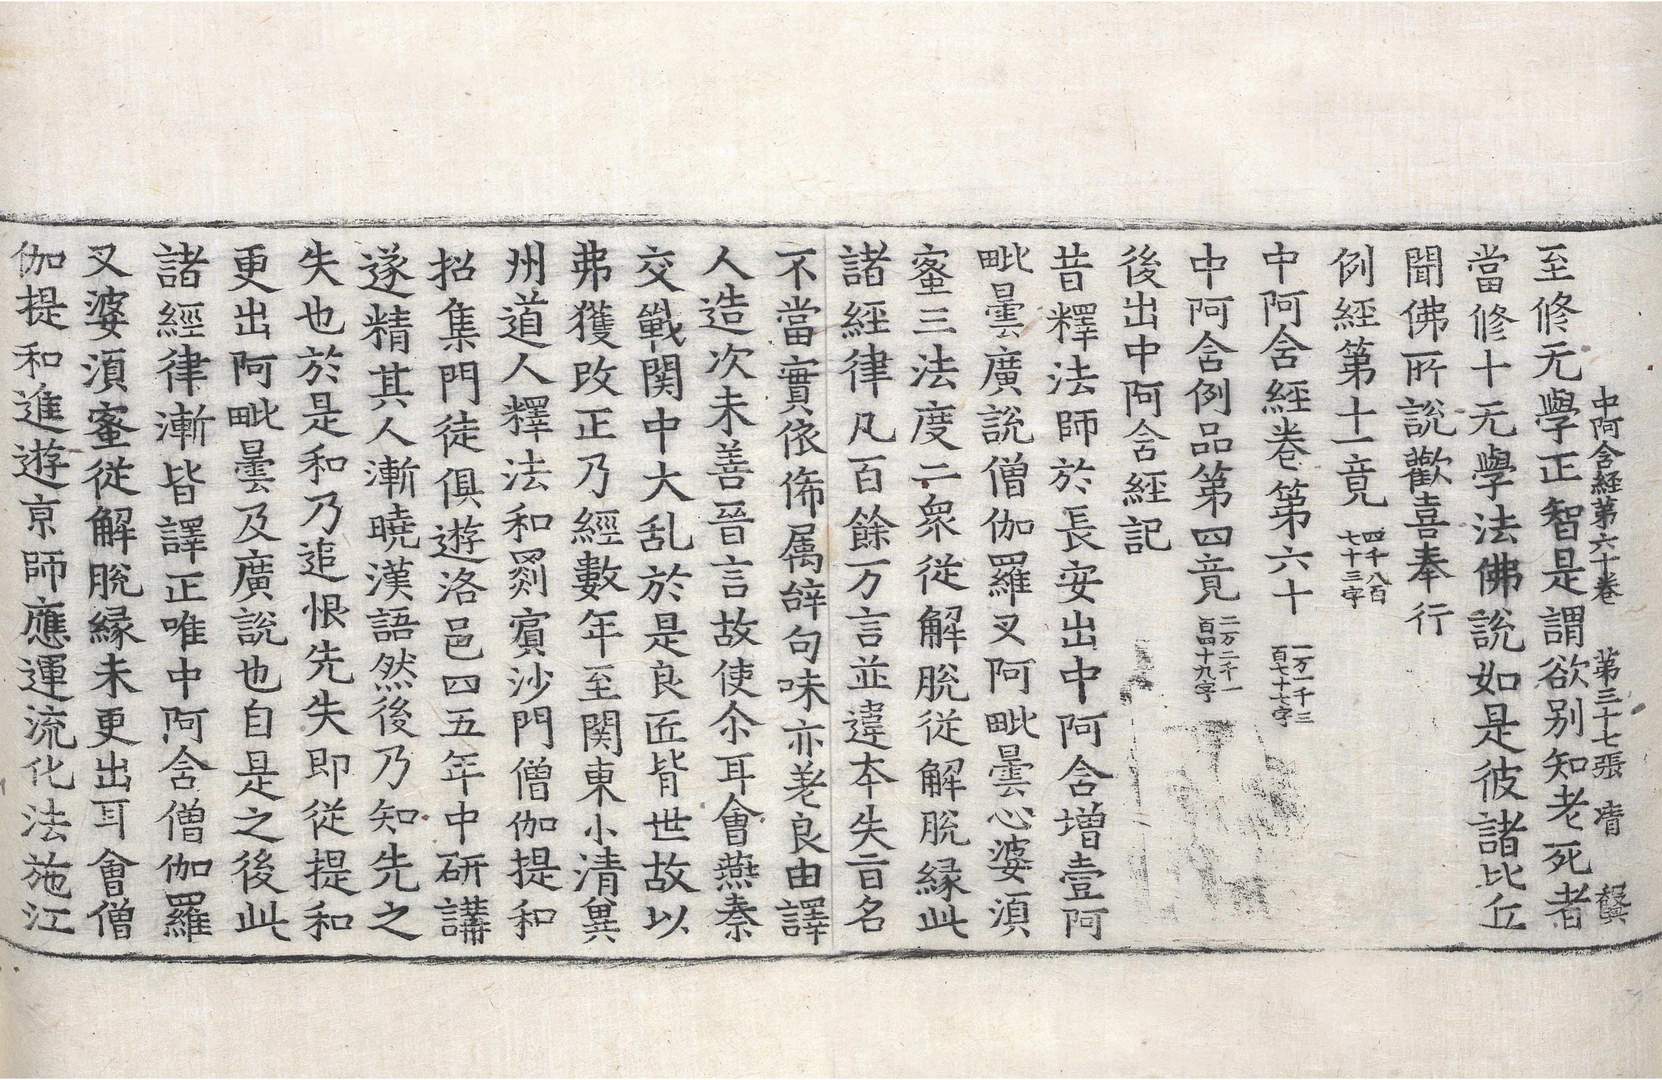 中阿含経第六十卷　第三十七張　凊　龔
至修无學正智是謂欲别知老死者
當修十无學法佛說如是彼諸比丘
聞佛所說歡喜奉行
例經第十一竟 四千八百七十三字
中阿含經卷第六十 一万一千三百七十七字
中阿含例品第四竟 二万二千一百四十九字
後出中阿含經記
昔釋法師於長安出中阿含增壹阿
毗曇廣說僧伽羅叉阿毗曇心婆湏
蜜三法度二衆從解脫從解脫緣此
諸經律凡百餘万言並違本失旨名
不當實依俙属辞句味亦差良由譯
人造次未善晉言故使尒耳會燕秦
交戰関中大乱於是良匠背世故以
弗獲改正乃經數年至関東小清冀
州道人釋法和罽賓沙門僧伽提和
招集門徒俱遊洛邑四五年中研講
遂精其人漸曉漢語然後乃知先之
失也於是和乃追恨先失即從提和
更出阿毗曇及廣說也自是之後此
諸經律漸皆譯正唯中阿含僧伽羅
叉婆湏蜜從解脫緣未更出耳會僧
伽提和進遊京師應運流化法施江